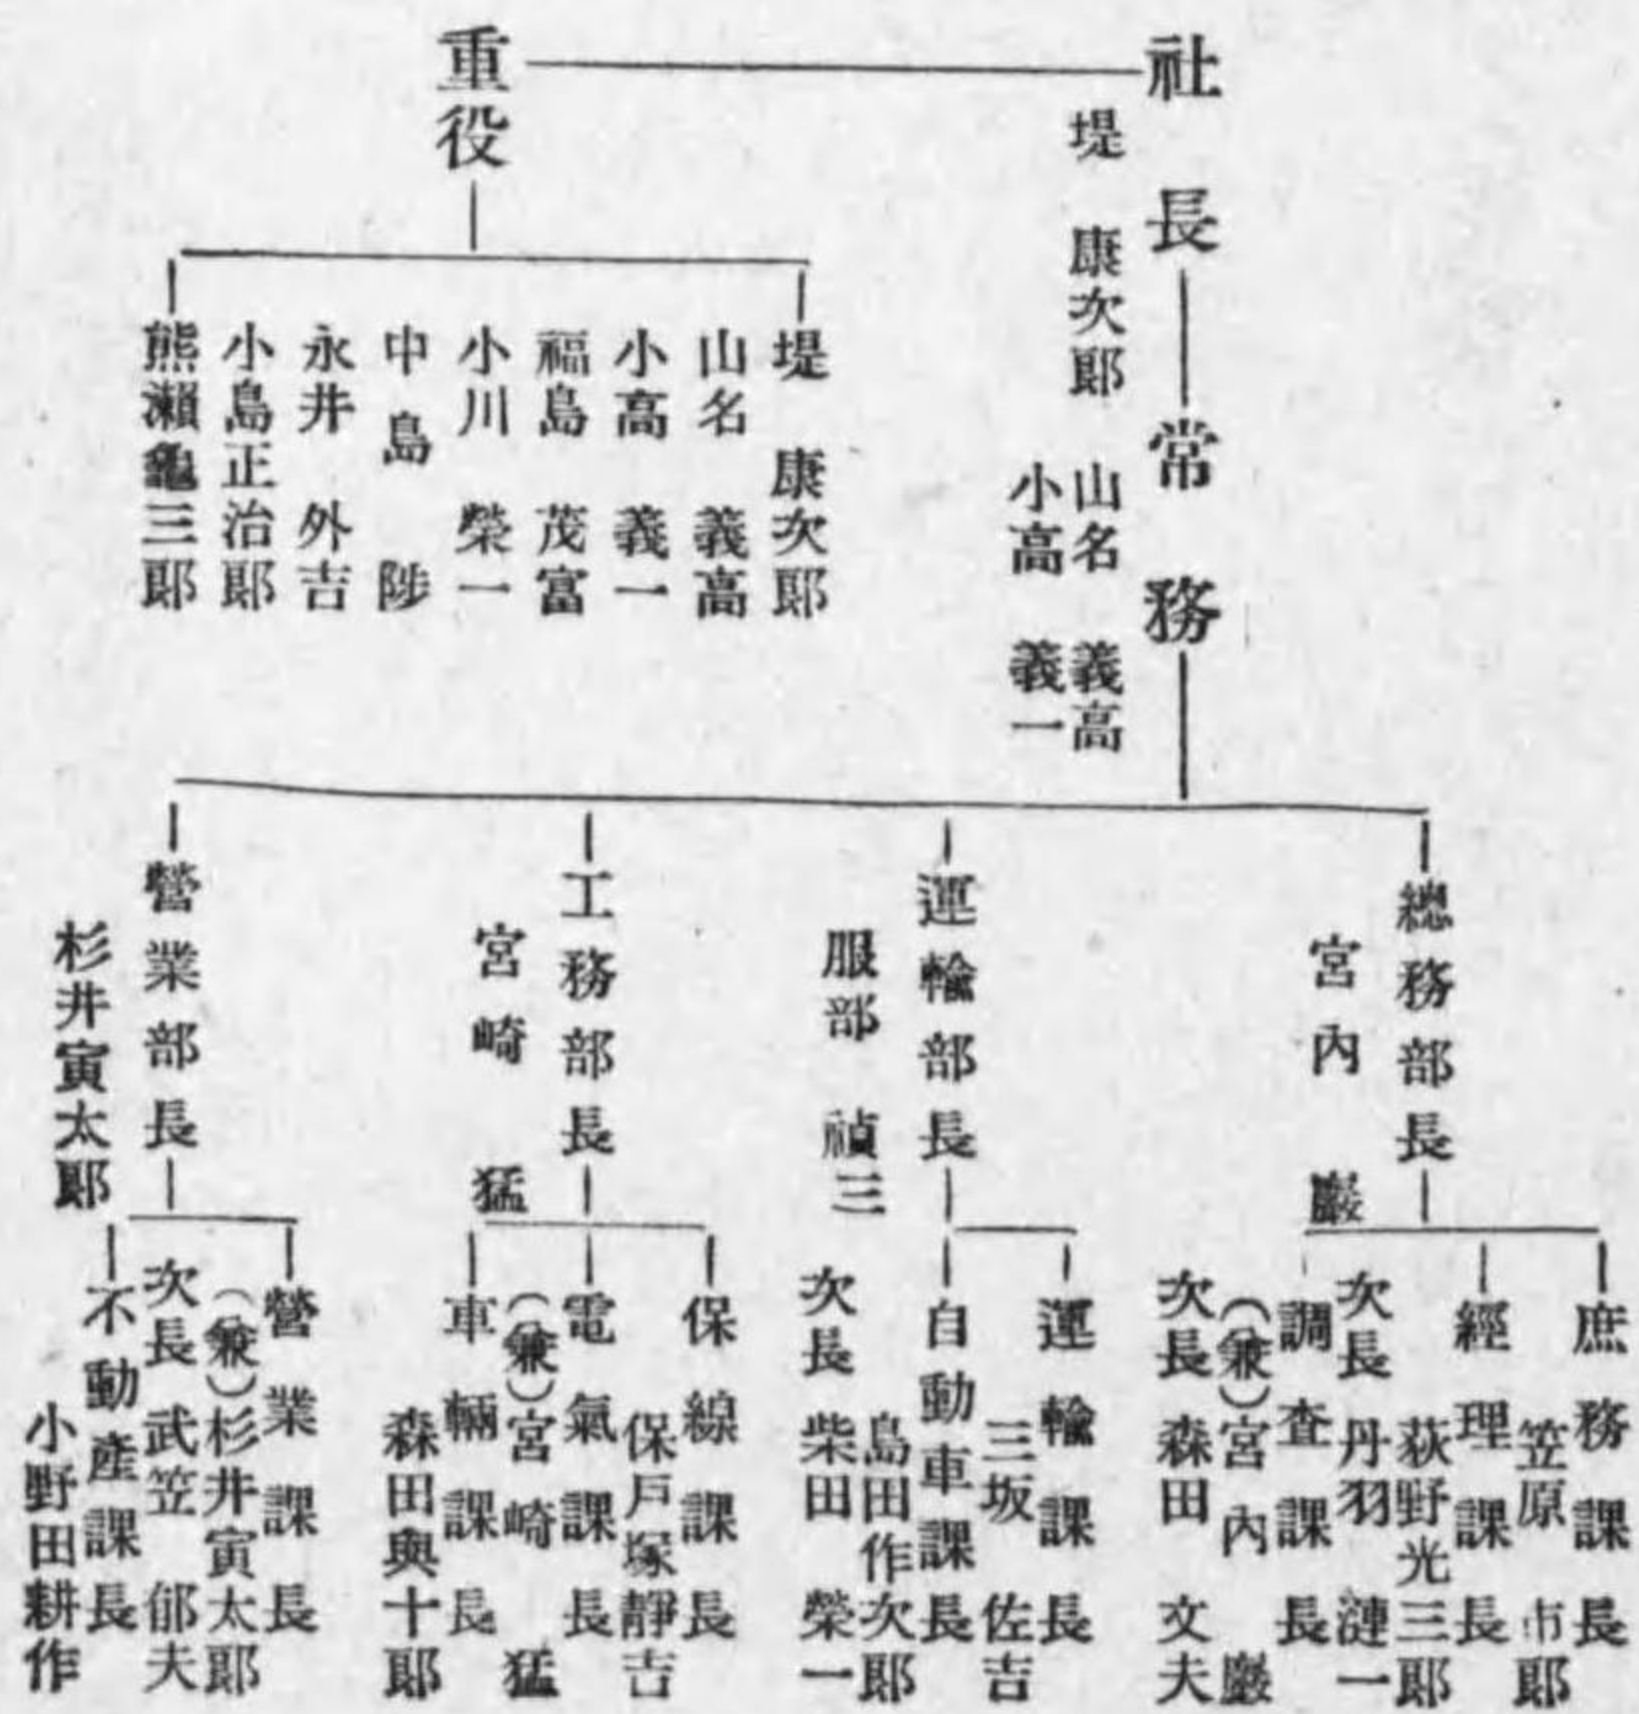 社長
堤 康次郞
常務
山名 義高
小高 義一
重役
堤 康次郞
山名 義高
小高 義一
福島 茂富
小川 榮一
中島 陟
永井 外吉
小島正治郞
熊瀨龜三郞
總務部長
宮內 巖
庶務課長
笠原 市郞
經理課長
荻野光三郞
次長 丹羽 漣一
調査課長
(兼)宮內 巖
次長 森田 文夫
運輸部長
服部 禎三
運輸課長
三坂 佐吉
自動車課長
島田作次郞
次長 柴田 榮一
工務部長
宮崎 猛
保線課長
保戶塚靜吉
電氣課長
(兼)宮崎 猛
車輛課長
森田與十郞
營業部長
杉井寅太郞
營業課長
(兼)杉井寅太郞
次長 武笠 郁夫
不動產課長
小野田耕作